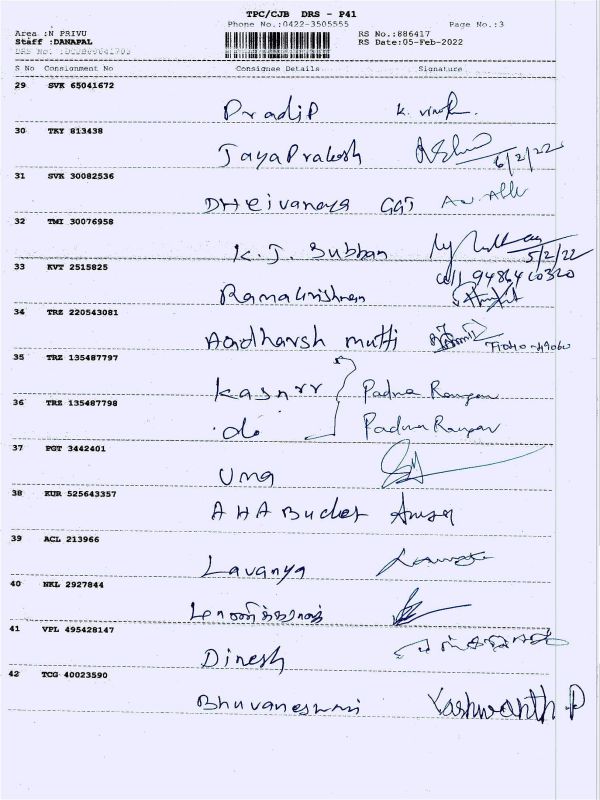 TPC/CJB DRS - P41
Phone No.:0422-3505555 Page No.:3
Area :N PRIVU RS No.:886417
Staff :DANAPAL RS Date:05-Feb-2022
S No Consignment No Consignee Details Signature
29 SVK 65041672
Pradip
30 TKY 813438
JayaPrakash 6/2/22
31 SVK 30082536
DHeivanaya
32 TMI 30076958
K.J. Subban 5/2/22
33 KVT 2515825
Ramakrishnan
34 TRZ 220543081
Aadharsh mutti
35 TRZ 135487797
Padma Rangan
36 TRZ 135487798
do Padma Rangan
37 PGT 3442401
Uma
38 KUR 525643357
AHA Bucket
39 ACL 213966
Lavanya
40 NKL 2927844
41 VPL 495428147
Dinesh
42 TCG 40023590
Bhuvaneswari Yashwanth P